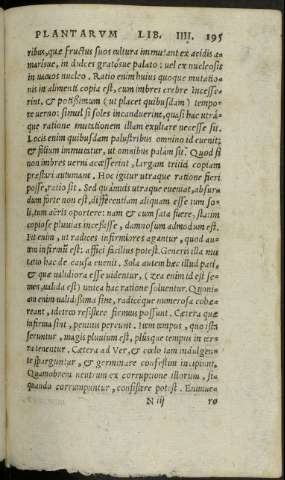 PLANTARVM LIB. IIII. 195
ribus, quæ fructus suos cultura immutant ex acidis a-
marisue, in dulces gratósue palato: uel ex nucleosis
in uacuos nucleo. Ratio enim huius quoque mutatio-
nis in alimenti copia est, cum imbres crebre incesse-
rint, & potissimum (ut placet quibusdam) tempo-
re uerno: simul si soles incanduerint, quasi hac utra-
que ratione mutationem illam exultare necesse sit.
Locis enim quibusdam palustribus omnino id euenit:
& silium immutetur, ut omnibus palam sit. Quod si
non imbres uerni accesserint, largam tritici copiam
præstari autumant. Hoc igitur utraque ratione fieri
posse, ratio sit. Sed quamuis utraque eueniat, absur-
dum forte non est, differentiam aliquam esse tum so-
li, tum aëris oportere: nam & cum sata fuere, statim
copiose pluuias incessisse, damnosum admodum est.
Fit enim, ut radices infirmiores agantur, quod au-
tem infirmum est: affici facilius potest. Generis illa mu-
tatio hac de causa euenit. Sola autem hæc illud pati,
& quæ ualidiora esse uidentur, (zea enim id est se-
men, ualida est) unica hæc ratione soluentur. Quoni-
am enim ualidissima sint, radiceque numerosa cohæ-
reant, idcirco resistere firmius possunt. Cætera quæ
infirma sint, penitus pereunt. tum tempus, quo ista
seruntur, magis pluuium est, plusque tempus in ter-
ra tenentur. Cætera ad Ver, & cœlo tam indulgen-
te sparguntur, & germinare confestim incipiunt,
Quamobrem neutrum ex corruptione illorum, si-
quando corrumpuntur, consistere potest. Enimue-
N iij ro